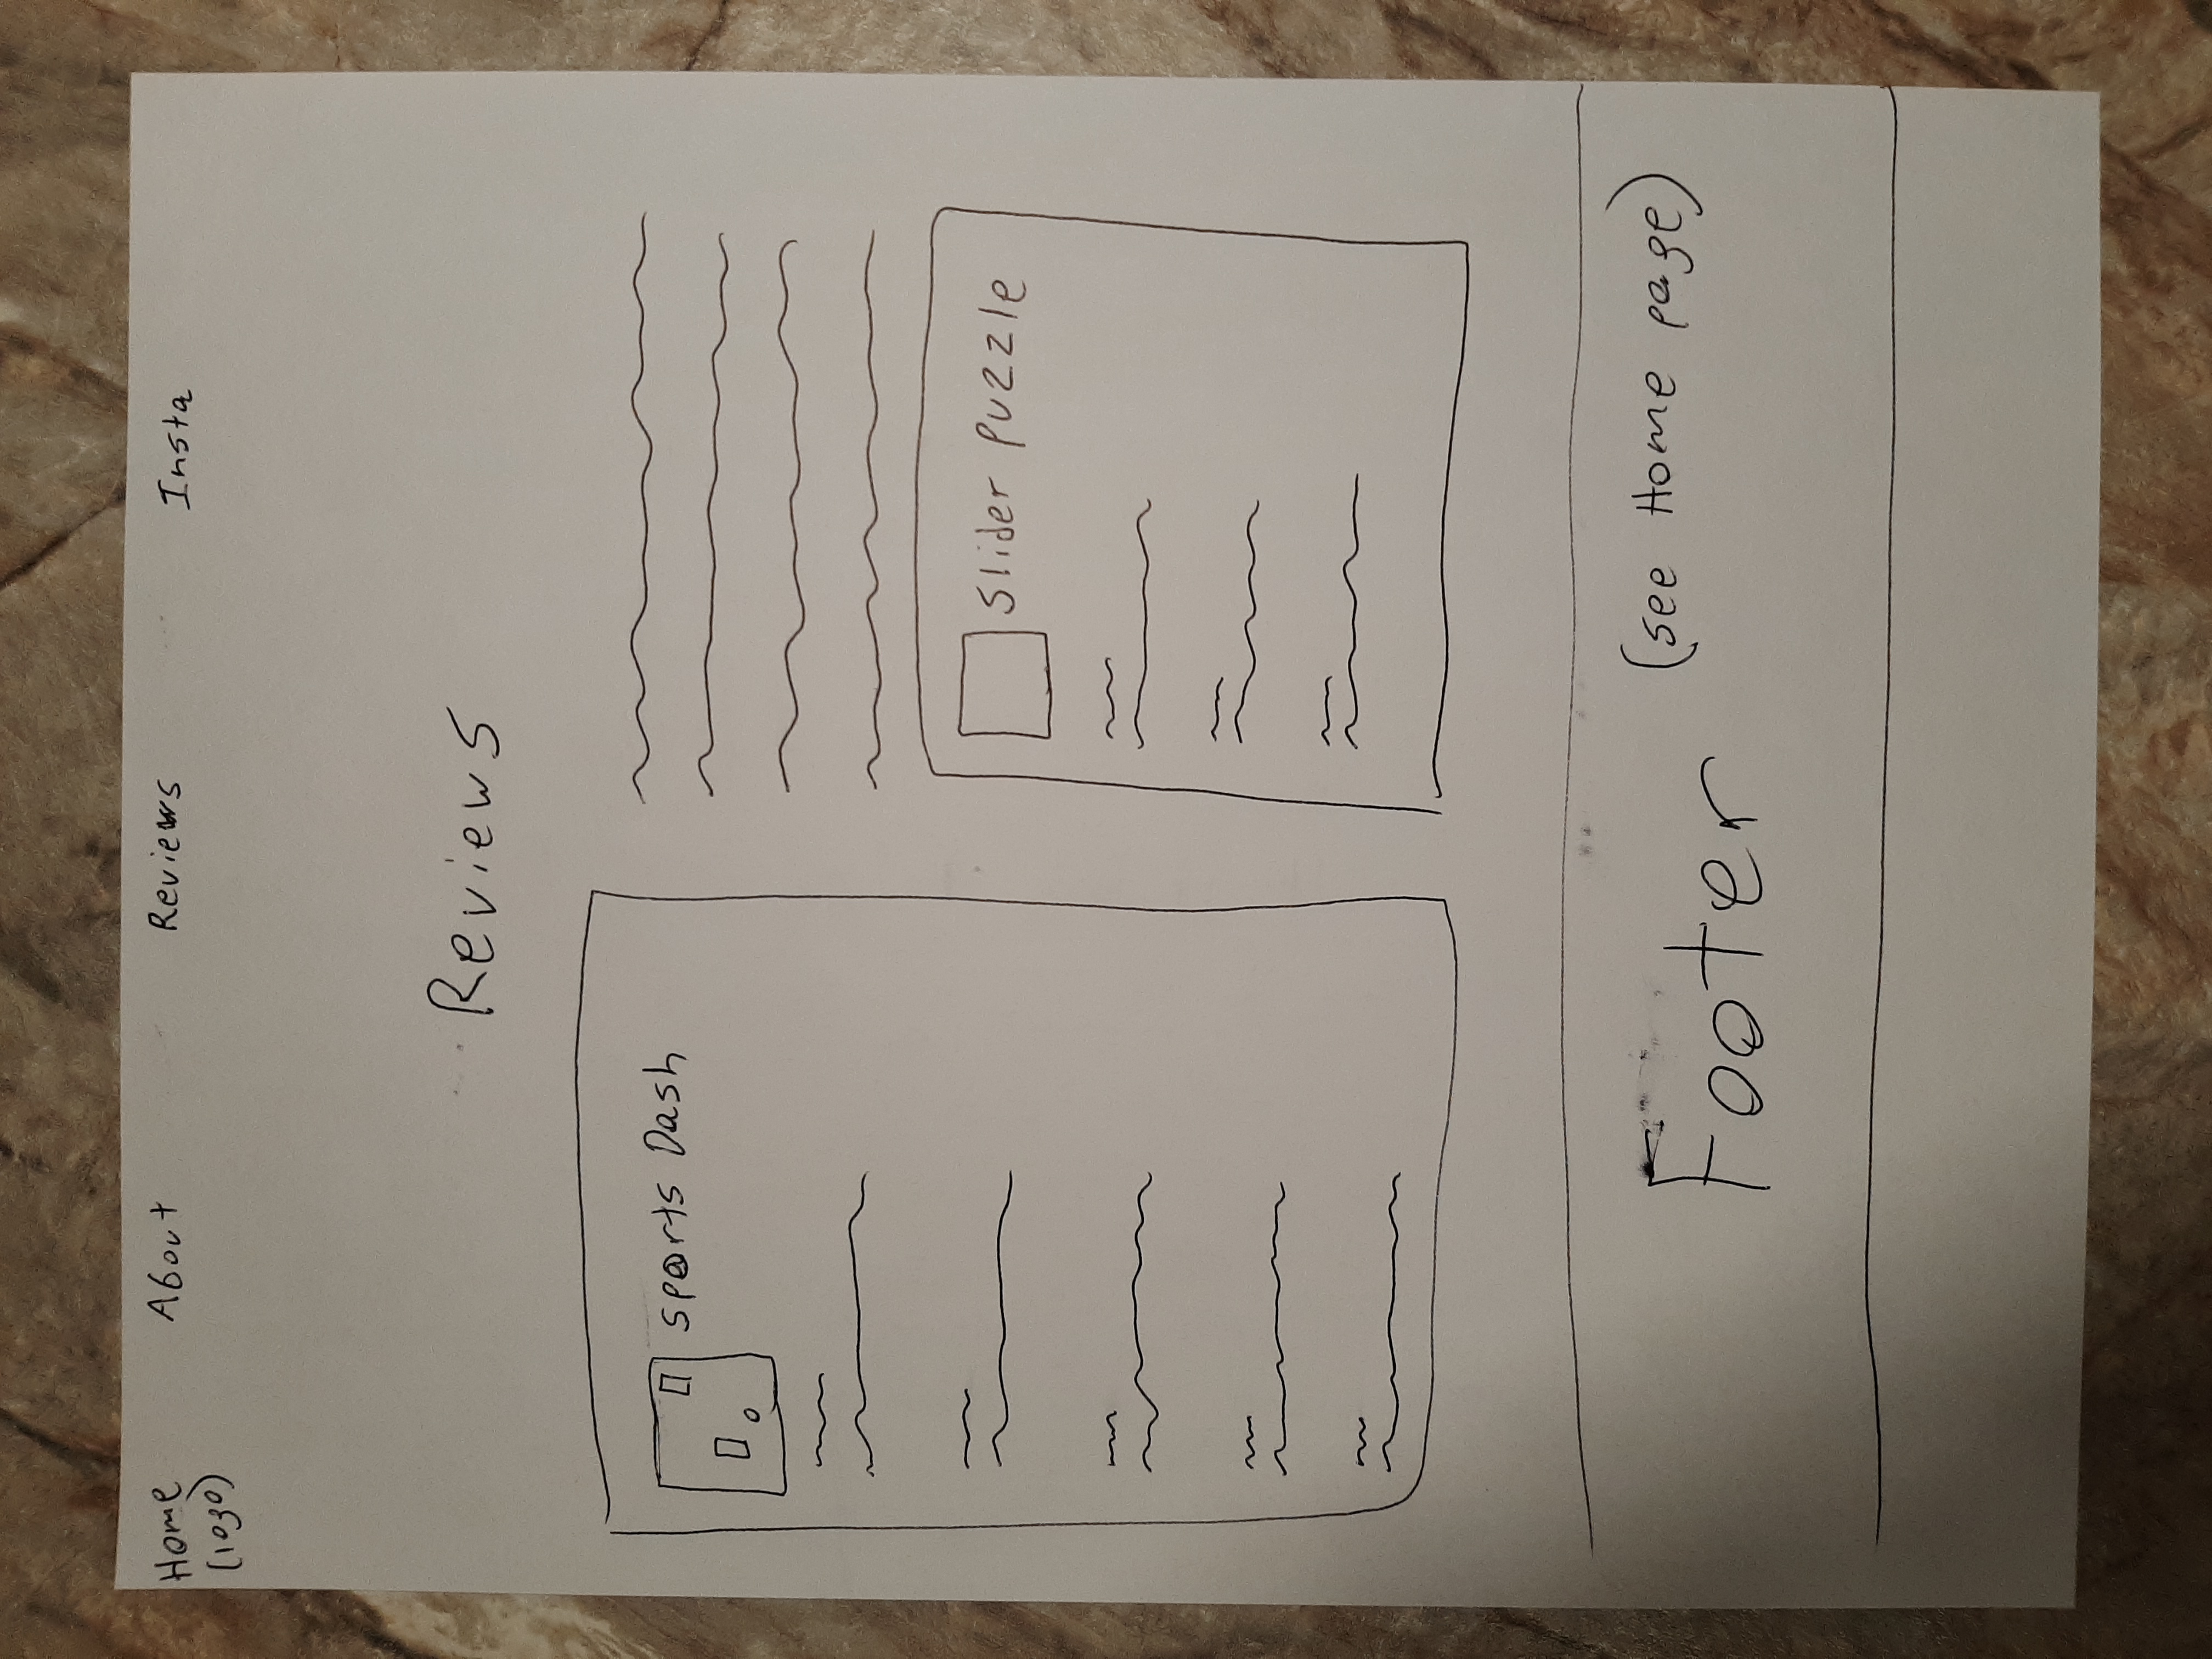 Home
(logo)
About
Reviews
Insta
Reviews
sports Dash
Slider Puzzle
Footer
(see Home page)